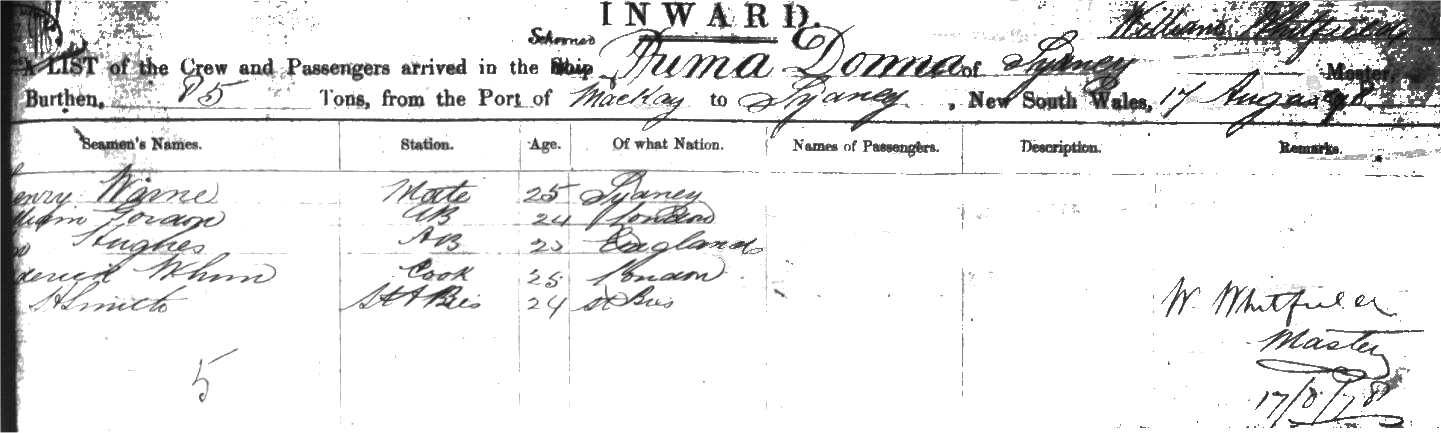 INWARD.
William Whitfield
A LIST of the Crew and Passengers arrived in the Schooner Prima Donna of Sydney Master,
Burthen, 85 Tons, from the Port of Mackay to Sydney, New South Wales, 17 August 78.
Seamen's Names. Station. Age. Of what Nation. Names of Passengers. Description. Remarks.
enry Warne Mate 25 Sydney
lliam Gordon AB 24 London
Hughes AB 23 England
derick Whim Cook 25 London
H Smith 24
W. Whitfield
Master
5
17/8/78